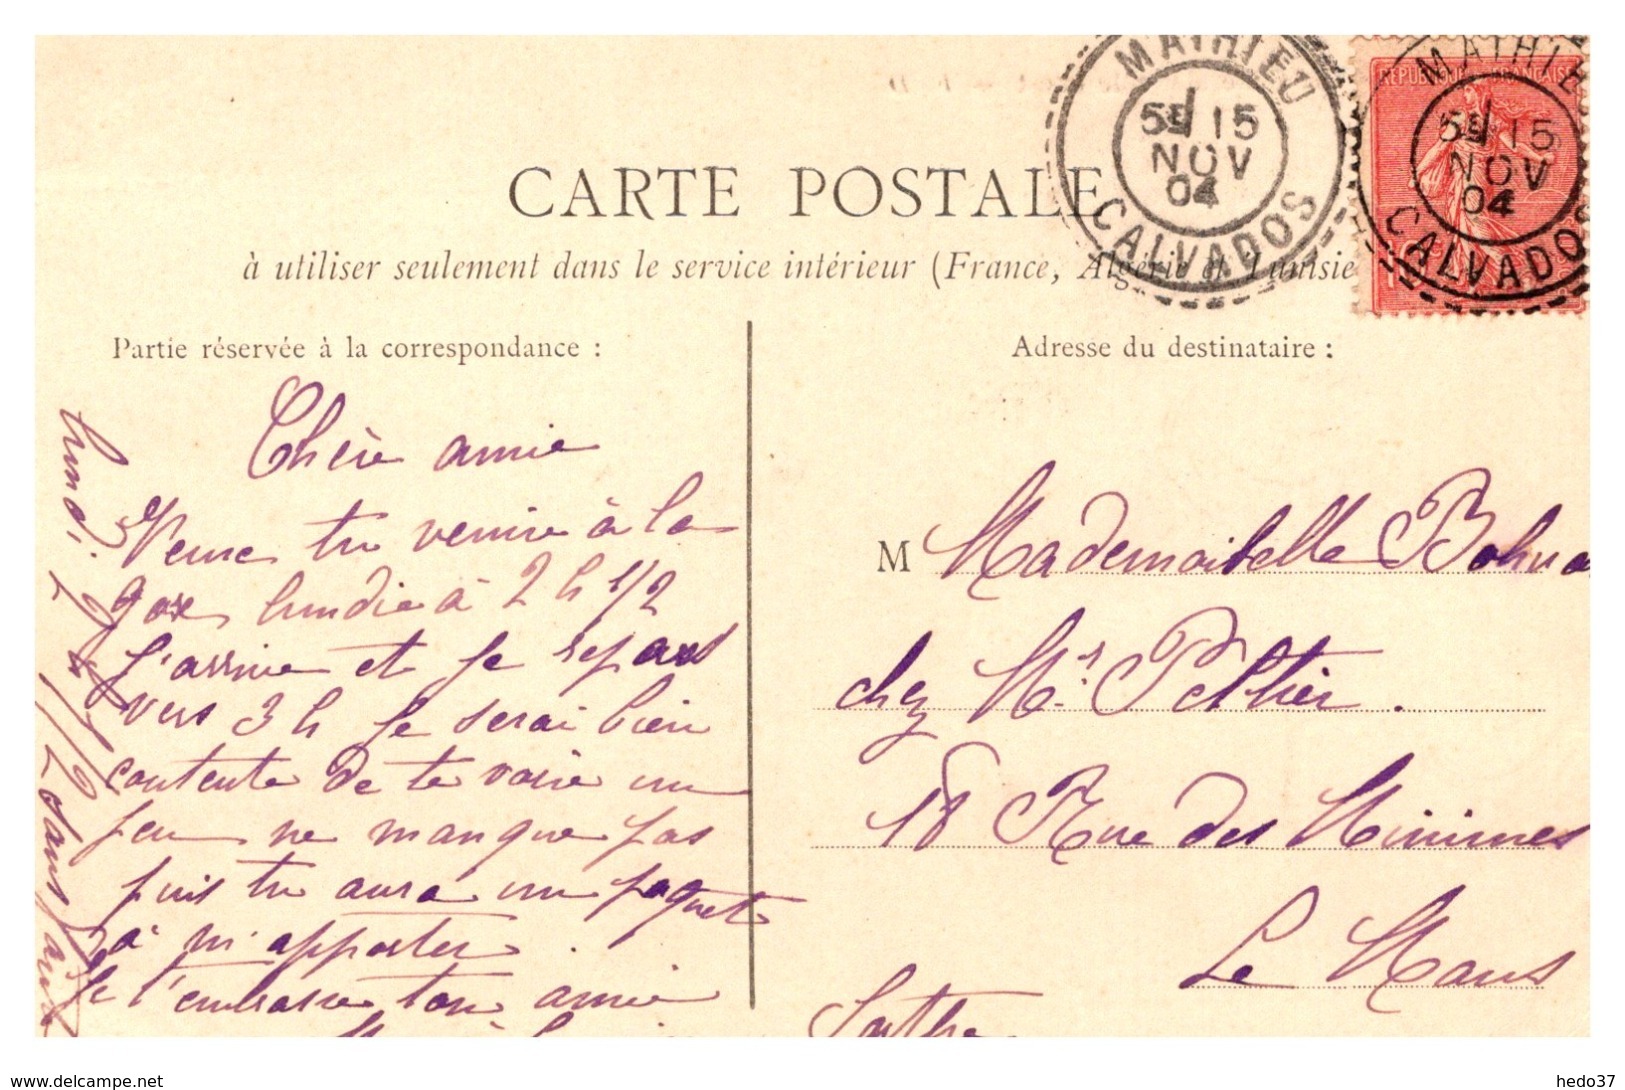 MATHIEU
5E 15
NOV
04
CALVADOS
RÉPUBLIQUE FRANÇAISE
MATHIE
5E 15
NOV
04
CALVADOS
10
CARTE POSTALE
à utiliser seulement dans le service intérieur (France, Algérie et Tunisie
Partie réservée à la correspondance :
Chère amie
tu venire à la
gare lundie à 2 h 1/2
J'arrive et je repars
vers 3 h je serai bien
contente de te voire un
peu ne manque pas
puis tu aura un paquet
à m'apporter
Je t'embrasse ton amie
lundi 2 h 1/2 sans faute
Adresse du destinataire :
M Mademoiselle
chez Mr Peltier.
18 Rue des Minimes
Le Mans
Sarthe
delcampe.net
hedo37